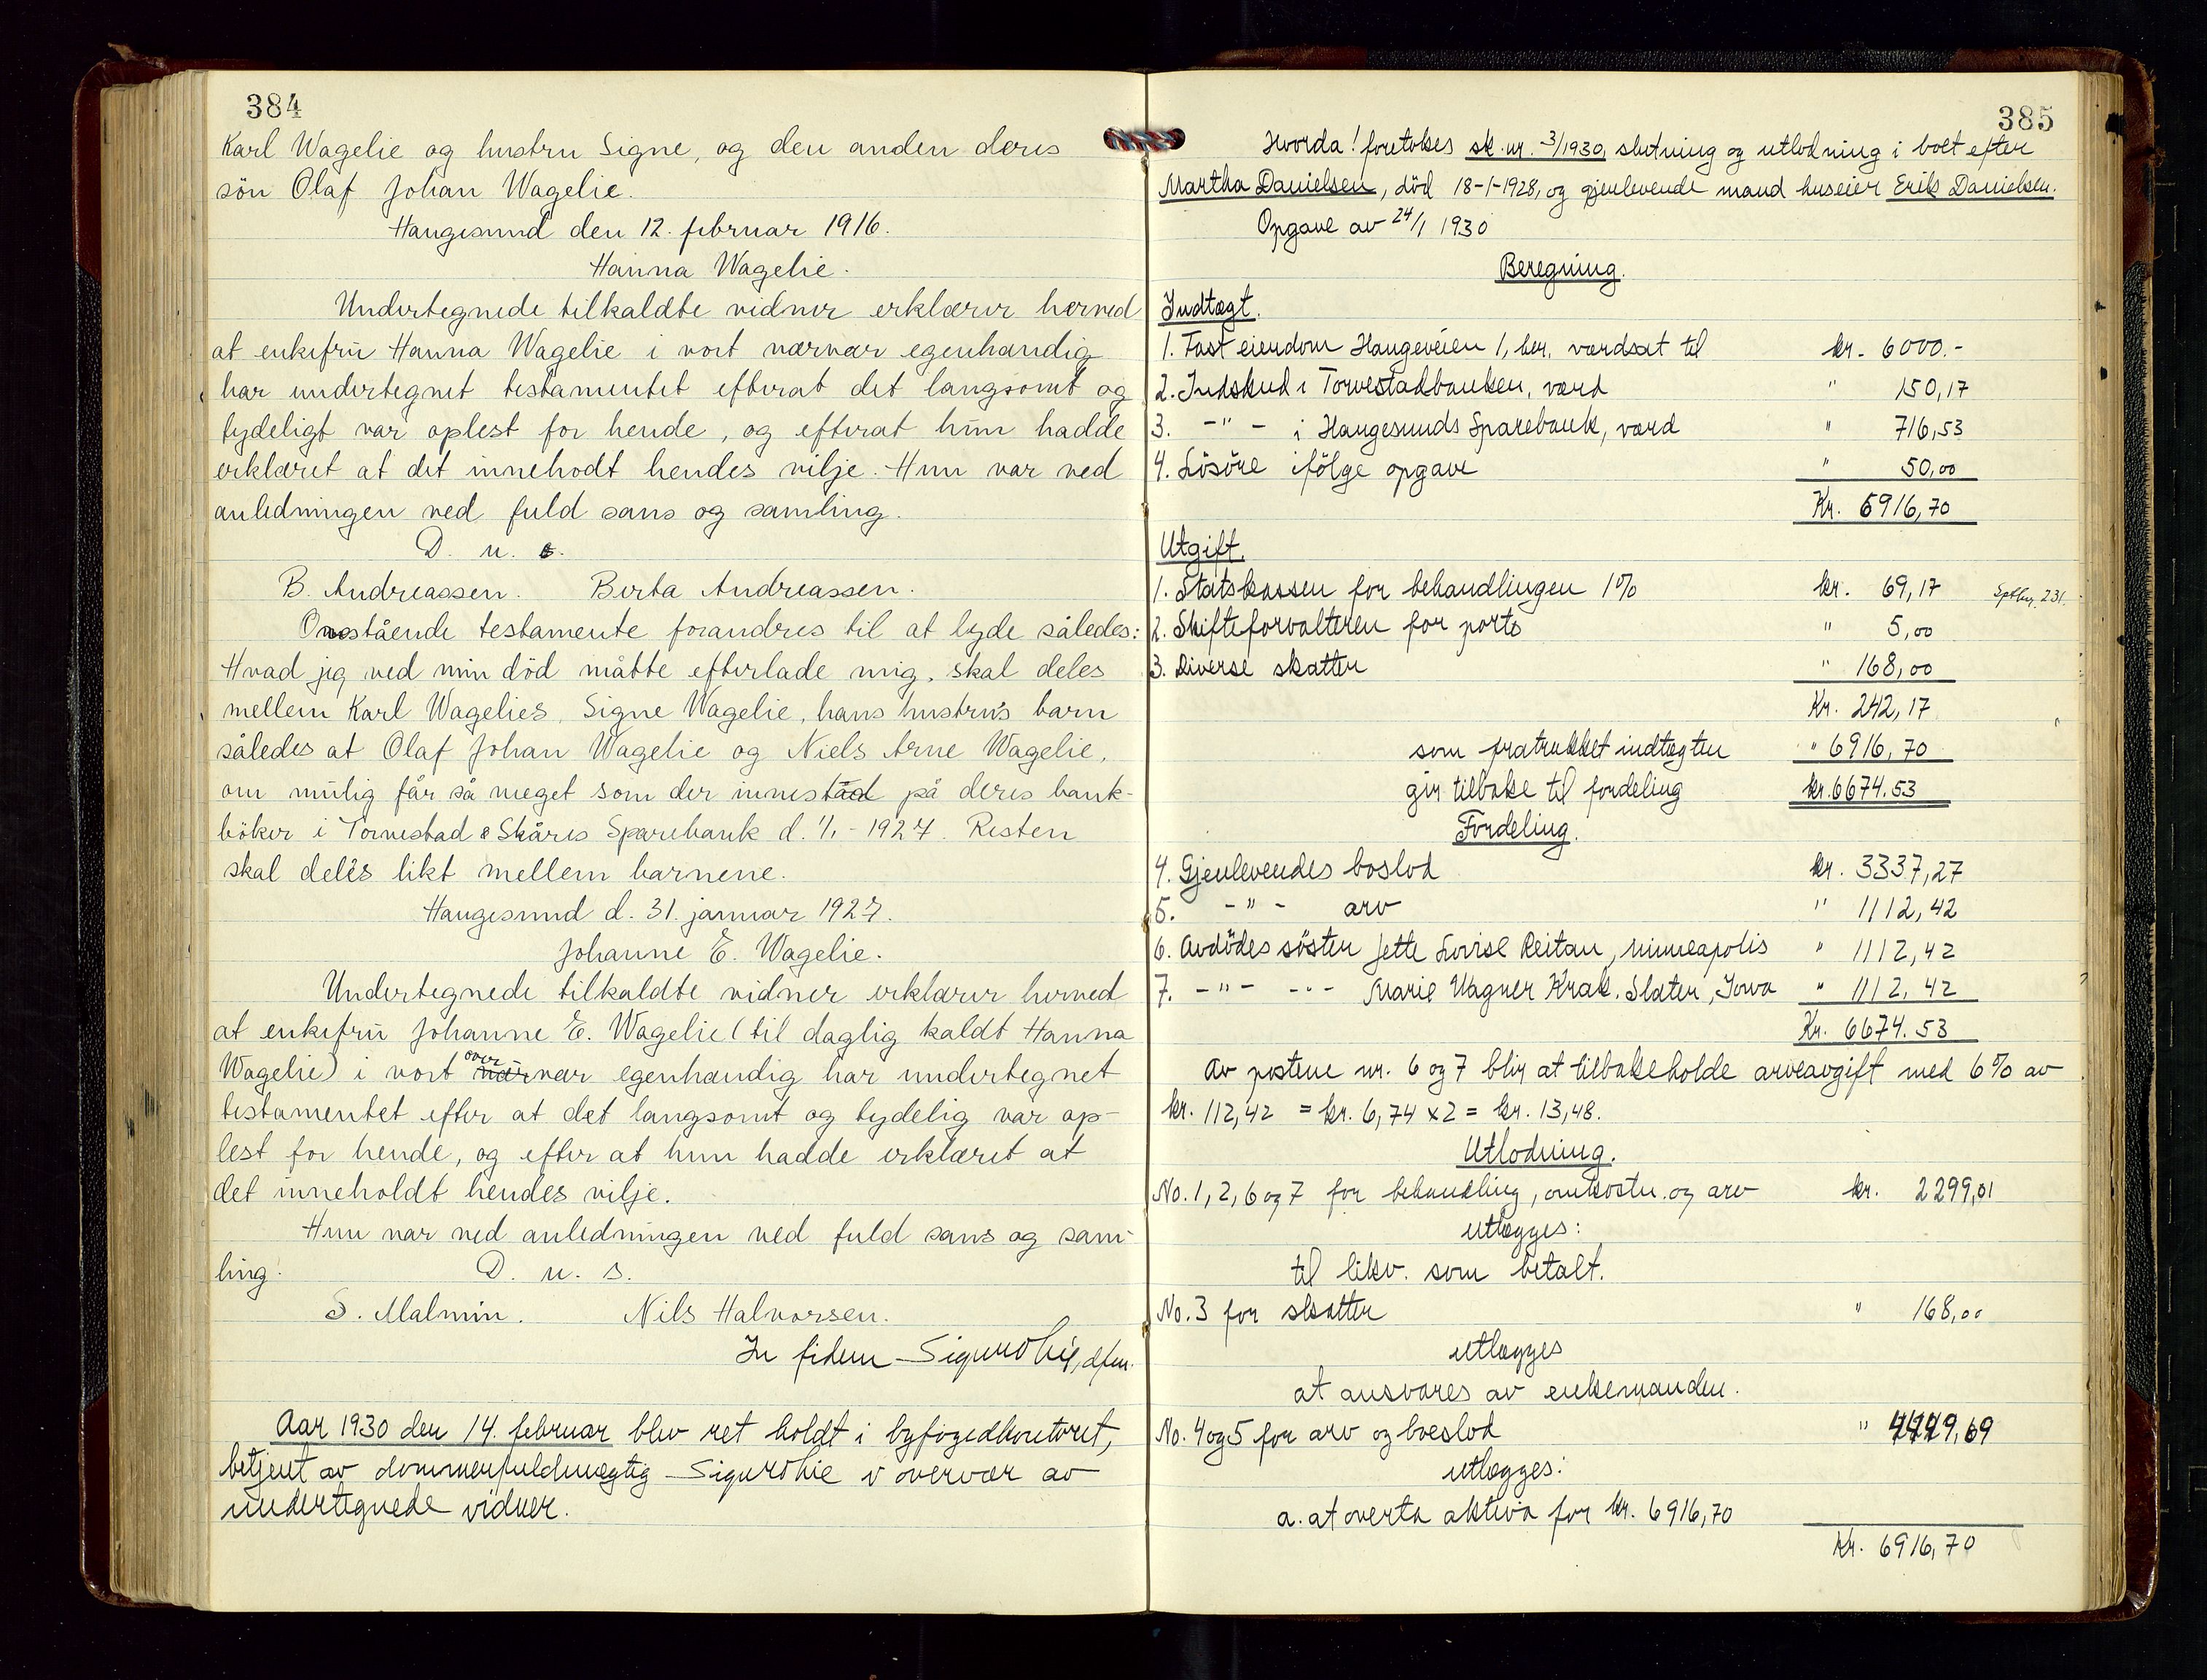 384
Karl Wagelie og hustru Signe, og den anden deres
sön Olaf Johan Wagelie.
Haugesund den 12. februar 1916.
Hanna Wagelie.
Undertegnede tilkaldte vidner erklærer herved
at enkefrü Hanna Wagelie i vort nærvær egenhændig
har undertegnet testamentet efterat det langsomt og
tydeligt var oplest for hende, og efterat hün hadde
erklæret at det innehodt hendes vilje. Hun var ved
anledningen ved fuld sans og samling.
D. u. s.
B. Andreassen. Berta Andreassen.
Ovostående testamente forandres til at lyde således:
Hvad jeg ved min död måtte efterlade mig, skal deles
mellem Karl Wagelies, Signe Wagelie, hans hustru's barn
således at Olaf Johan Wagelie og Niels Arne Wagelie,
om mülig får så meget som der innestäd på deres bank-
böker i Torvestad & Skåres Sparebank d. 1/1 - 1927. Resten
skal deles likt mellem barnene.
Haugesund d. 31. januar 1927.
Johanne E. Wagelie.
Undertegnede tilkaldte vidner erklærer herved
at enkefrü Johanne E. Wagelie (til daglig kaldt Hanna
Wagelie) i vort över nærvær egenhændig har undertegnet
testamentet efter at det langsomt og tydelig var op-
lest for hende, og efter at hun hadde erklæret at
det inneholdt hendes vilje.
Hun var ved anledningen ved fuld sans og sam-
ling. D. u. s.
S. Malmin. Nils Halvorsen.
In fidem Sigurd Lie, dfm.
Aar 1930 den 14. februar blev ret holdt i byfogedkontoret,
betjent av dommerfuldmægtig Sigurd Lie i overvær av
undertegnede vidner.
385
Hvorda! foretokes sk. nr. 3/1930, slutning og utlodning i boet efter
Martha Danielsen, död 18-1-1928, og gjenlevende mand huseier Erik Danielsen.
Opgave av 24/1 1930
Beregning.
Indtægt.
1. Fast eiendom Haugeveien 1, her, værdsat til kr. 6000.-
2. Indskud i Torvestadbanken, værd " 150,17
3. -"- i Haugesunds Sparebank, værd " 716,53
4. Lösöre ifölge opgave " 50,00
Kr. 6916,70
Utgift.
1. Statskassen for behandlingen 1% kr. 69,17 Sptbg. 231.
2. Skifteforvalteren for porto " 5,00
3. Diverse skatter " 168,00
Kr. 242,17
som fratrukket indtægten " 6916,70
gir tilbake til fordeling kr. 6674.53
Fordeling.
4. Gjenlevendes boslod kr. 3337,27
5. -"- arv " 1112,42
6. Avdödes söster Jette Lovise Reitan, Minneapolis " 1112,42
7. -"- -"- Marie Wagner Krak. Slater, Iowa " 1112,42
Kr. 6674.53
Av postene nr. 6 og 7 blir at tilbakeholde arveavgift med 6% av
kr. 112,42 = kr. 6,74 x 2 = kr. 13,48.
Utlodning.
No. 1, 2, 6 og 7 for behandling, omkostn. og arv kr. 2299,01
utlægges:
til likv. som betalt.
No. 3 for skatter " 168,00
utlægges
at ansvares av enkemanden.
No. 4 og 5 for arv og boeslod " 4449,69
utlægges:
a. at overta aktiva for kr. 6916,70
Kr. 6916,70